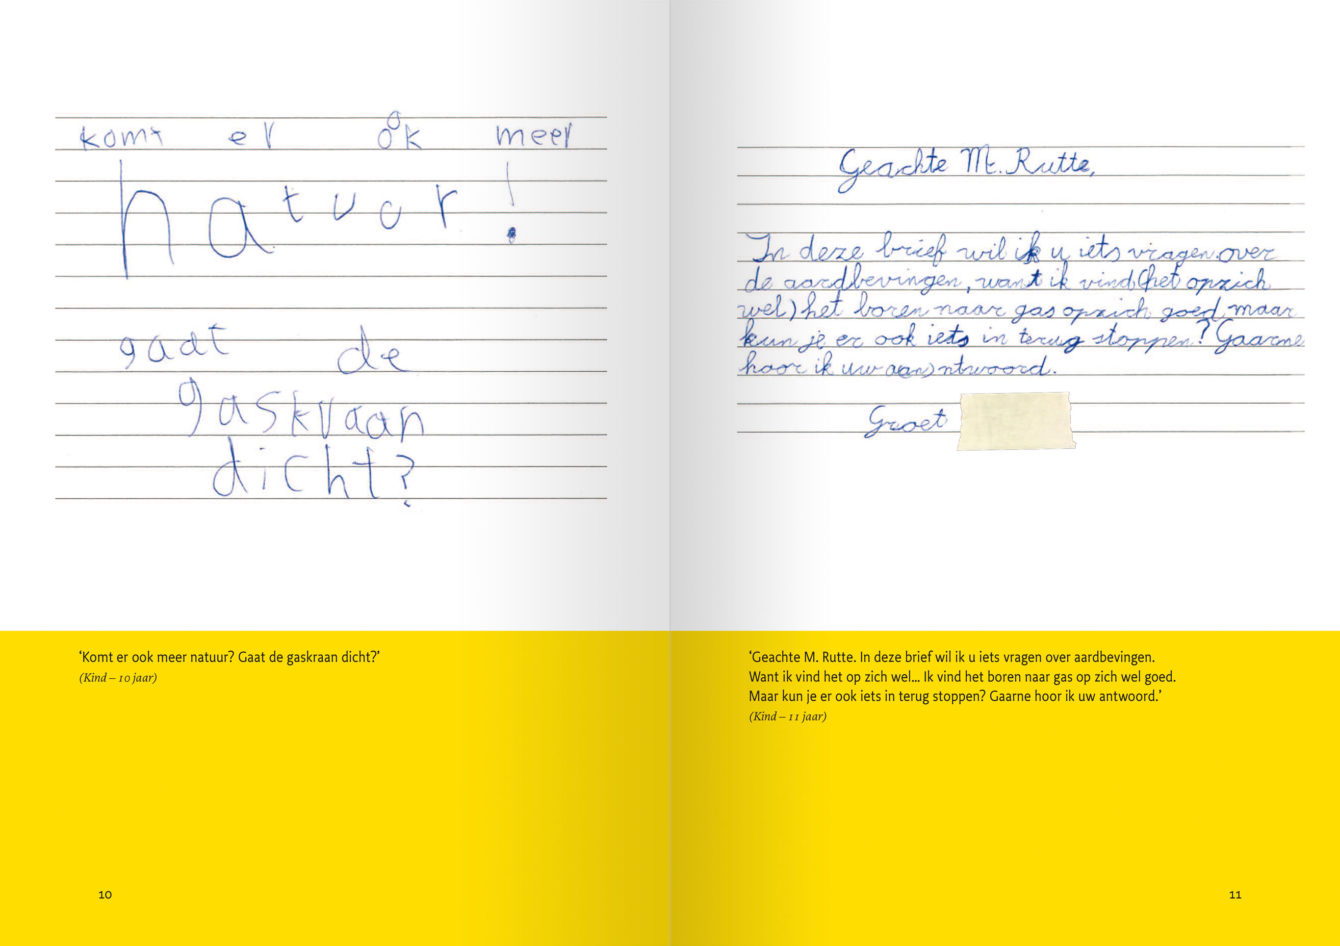 komt er ook meer
natuur!
gaat de
gaskraan
dicht?
'Komt er ook meer natuur? Gaat de gaskraan dicht?'
(Kind – 10 jaar)
10
Geachte M. Rutte,
In deze brief wil ik u iets vragen over
de aardbevingen, want ik vind (het opzich
wel) het boren naar gas opzich goed maar
kun je er ook iets in terug stoppen? Gaarne
hoor ik uw aan)ntwoord.
Groet
'Geachte M. Rutte. In deze brief wil ik u iets vragen over aardbevingen.
Want ik vind het op zich wel... Ik vind het boren naar gas op zich wel goed.
Maar kun je er ook iets in terug stoppen? Gaarne hoor ik uw antwoord.'
(Kind – 11 jaar)
11